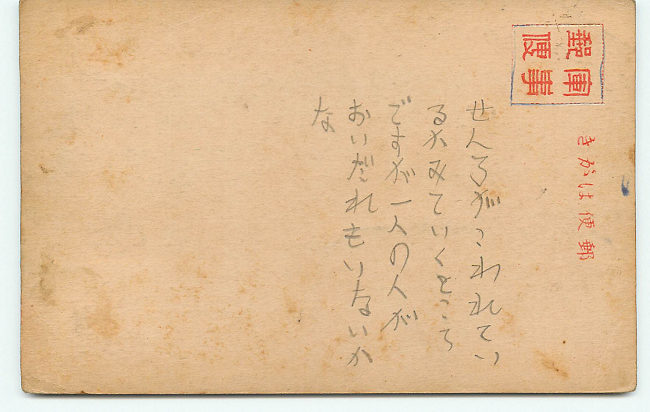 軍事郵便
郵便はがき
せんろがこわれてい
るかみていくところ
ですが一人の人が
おいだれもいないか
な